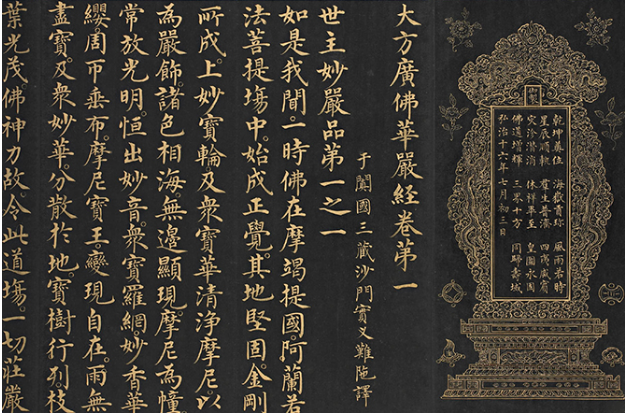 乾坤奠位 海嶽 珍 風雨若時
星辰順軌 生普 四夷咸賓
災沴潛消 休祥畢至 皇圖永固
佛道增輝 三界十方 同歸壽域
弘治十六年七月初三日
大方廣佛華嚴經卷第一
于闐國三藏沙門實叉難陁譯
世主妙嚴品第一之一
如是我聞。一時佛在摩竭提國。阿蘭若
法菩提場中。始成正覺。其地堅固。金剛
所成。上妙寶輪。及眾寶華清淨摩尼。以
為嚴飾。諸色相海。無邊顯現。摩尼為幢。
常放光明。恒出妙音。眾寶羅網。妙香華
纓。周帀垂布。摩尼寶王。變現自在。雨無
盡寶。及眾妙華。分散於地。寶樹行列。枝
葉光茂。佛神力故。令此道場。一切莊嚴